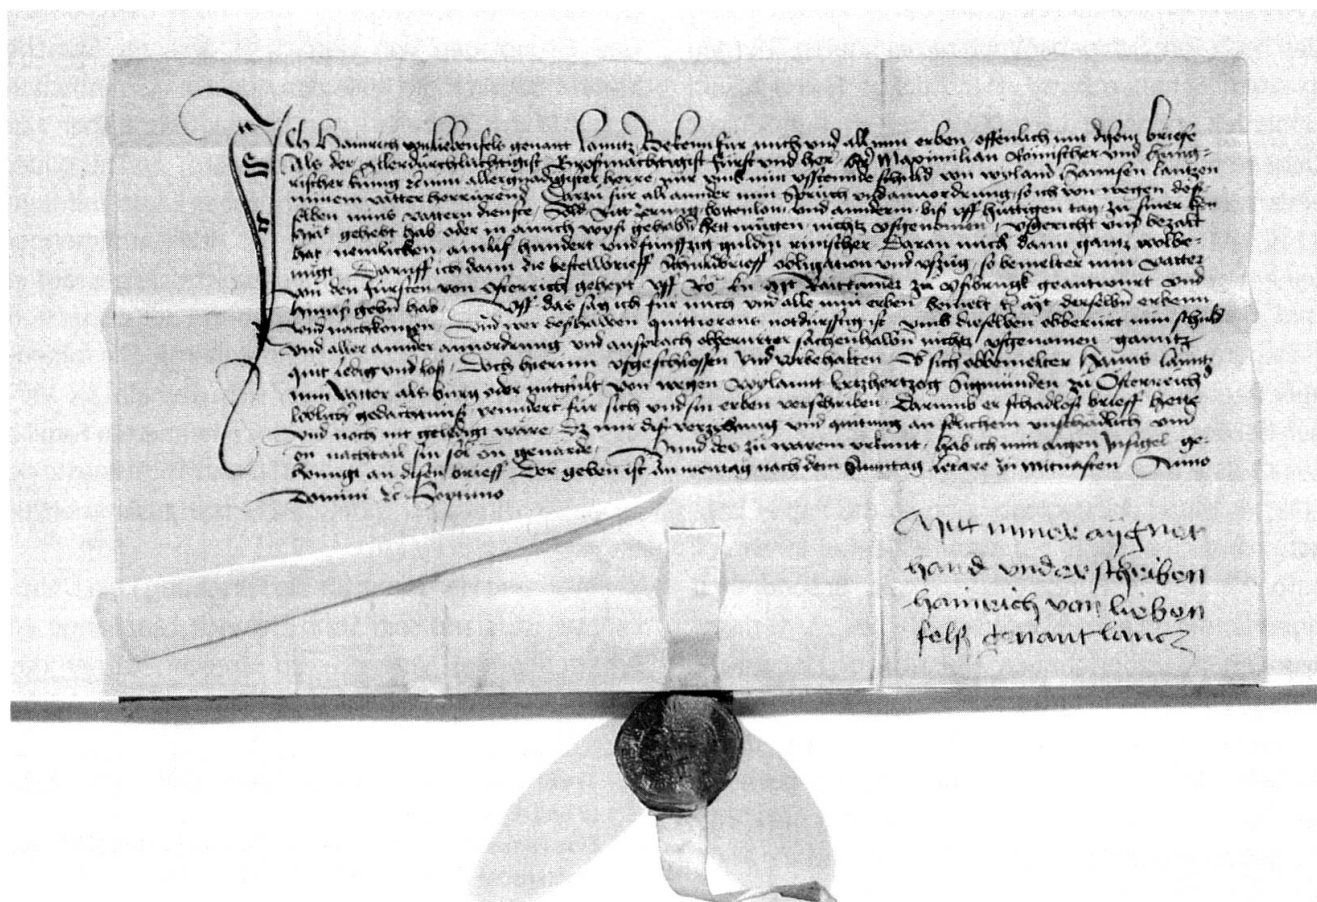 Ich Hainrich von Liebenfels genant Lanntz Bekenn für mich vnd all min erben offenlich mit disem brieffe
Als der Allerdurchluchtigist Grosmächtigist fürst vnd her her Maximilian Römischer vnd hung-
rischer kunig etc min allergnädigister herre mir vmb min vssteennde schuld von wyland Hannsen Lantzen
minem vatter herrürend Darzu für all annder min Sprüch vnd anvordrung so ich von wegen des-
selben mins vattern dienste Sold Ritt Zerung bottenlon vnd annderm biss vff hüttigen tag zu siner kn
Mat gehebt hab oder in ainich wyss gehaben hett mügen nichtz vsgenomen vsgericht vnd bezalt
hat nemlichen ainlif hundert vnd fünffzig guldin rinischer Daran mich dann gantz wolbe-
nügt Daruff ich dann die bestellbrieff Schuldbrieff obligation vnd vszüg so bemelter min vatter
von den fürsten von Österrich gehept vff Rö kn Mt Raittcamer zu Ysbrugk geantwurt vnd
hinuss geben hab Vff das sag ich für mich vnd alle min erben bemelt kn Mt derselben erben
vnd nachkomen Vnd wer desshalben quittierens notdürfftig ist vmb dieselben obberürt min schuld
vnd aller annder anvordrung vnd ansprach obberürter sachenhalben nichtz vsgenomen ganntz
quit ledig vnd loss Doch hierinn vsgeschlossen vnd vorbehalten Ob sich obbemelter Hanns Lanntz
min vatter als bürg oder mitgült von wegen wylannt Ertzhertzog Sigmunden zu Österreich
loblicher gedächtnuss yenndert für sich vnd sin erben verschriben Darumb er schadloss brieff hette
vnd noch nit geledigt wäre Dz mir dise verzyhung vnd quitung an sölichem vnschädlich vnd
on nachtail sin sol on geuärde Vnnd des zu warem vrkunt hab ich min aigen Insigel ge-
henngt an disen brieff Der geben ist An mentag nach dem Sunntag Letare zu mitvasten Anno
Domini etc Septimo
Mitt miner aÿgner
hand vnderschriben
hainrich von lieben
felß genant lancz